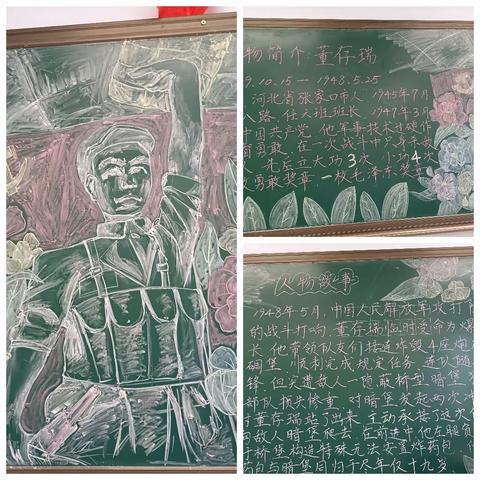 物简介:董存瑞
9.10.15—1948.5.25
河北省张家口市人 1945年7月
八路 任六班班长 1947年3月
中国共产党 他军事技术过硬作
勇敢 在一次战斗中只身
先后立大功3次 小功4次
勇敢奖章 一枚毛泽东奖章
人物故事
1948年5月,中国人民解放军攻打
的战斗打响 董存瑞临时受命为爆
长 他带领队友们接连炸毁4座炮
碉堡 顺利完成规定任务 连队随
锋 但突遭敌人一隐蔽桥型暗堡
部队损失惨重 对暗堡发起两次冲
董存瑞站了出来 主动承接了这次
向敌人暗堡爬去 在前进中他左腿负
于桥堡构造特殊无法安置炸药包
药包与暗堡同归于尽年仅十九岁